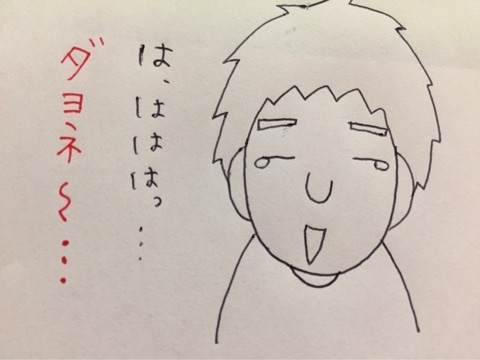 は、はははっ…
ダヨネ〜…